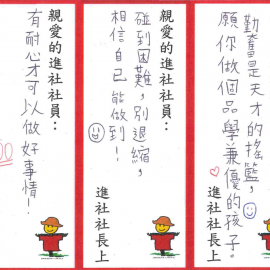 勤奮是天才的搖籃，
願你做個品學兼優的孩子。
進社社長上
親愛的進社社員：
碰到困難，別退縮，
相信自己能做到！
進社社長上
親愛的進社社員：
有耐心才可以做好事情！